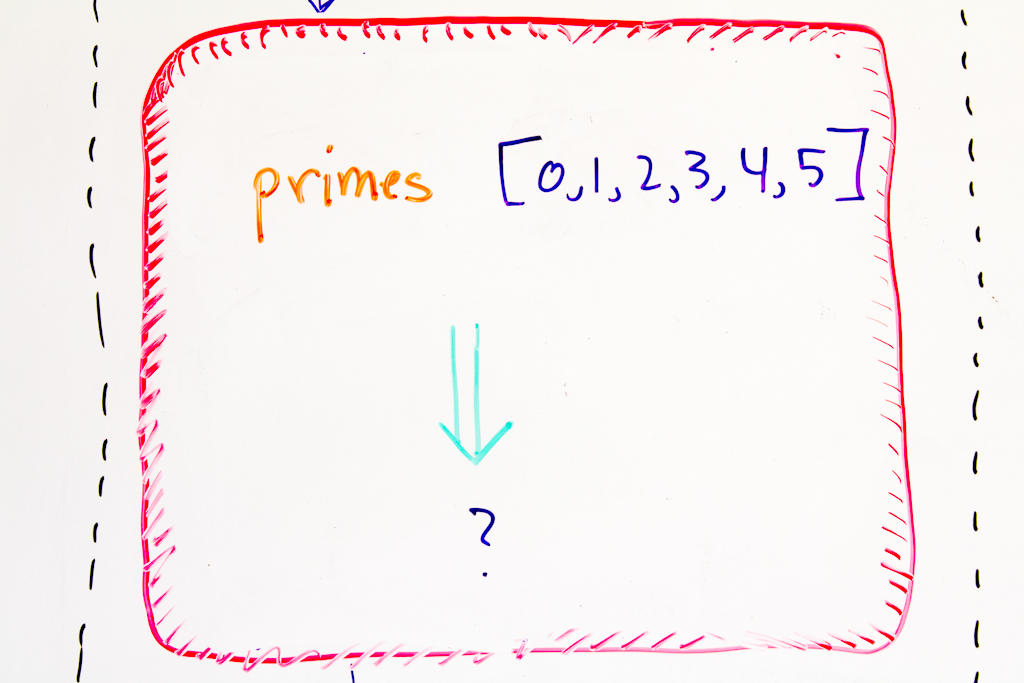 primes [0,1,2,3,4,5]
?